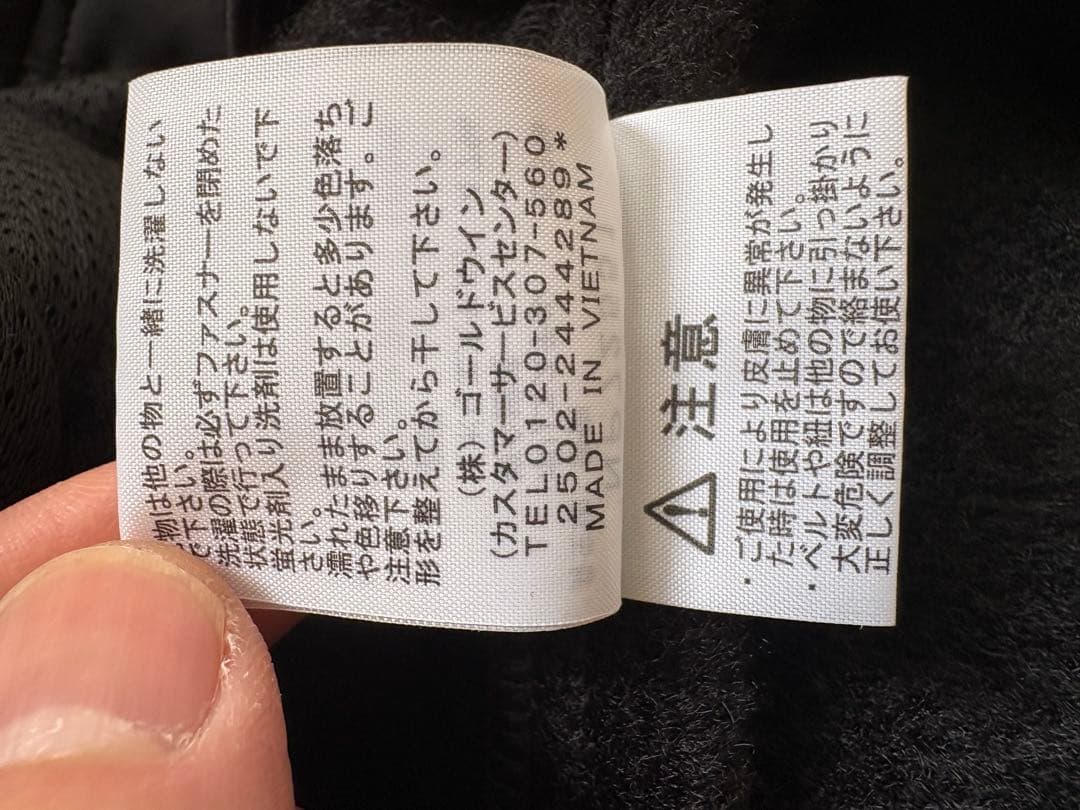 物は他の物と一緒に洗濯しない
で下さい。
洗濯の際は必ずファスナーを閉めた
状態で行って下さい。
蛍光剤入り洗剤は使用しないで下
さい。
濡れたまま放置すると多少色落ち
や色移りすることがあります。ご
注意下さい。
形を整えてから干して下さい。
(株)ゴールドウイン
(カスタマーサービスセンター)
TEL0120-307-560
2502-2444289*
MADE IN VIETNAM
注意
・ご使用により皮膚に異常が発生し
た時は使用を止めて下さい。
・ベルトや紐は他の物に引っ掛かり
大変危険ですので絡まないように
正しく調整してお使い下さい。